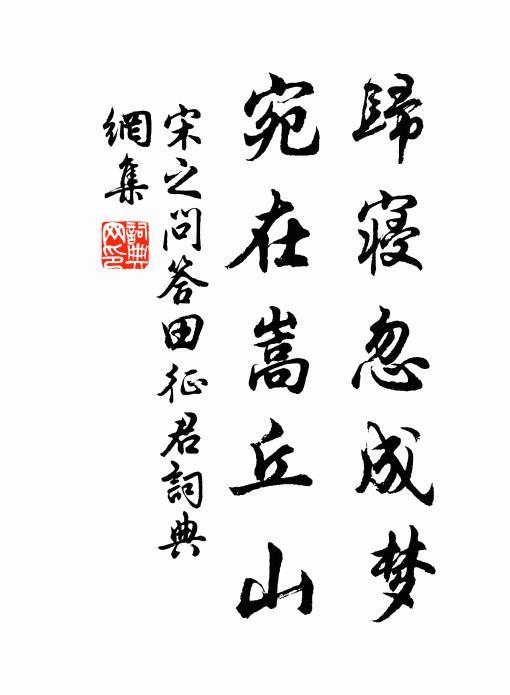 歸寝忽成梦
宛在嵩丘山
宋之问答田征君詞典
網集
詞典
网印